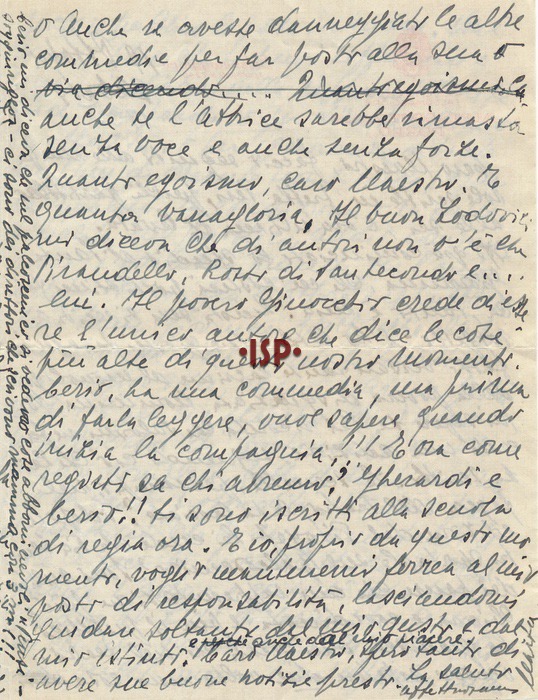 o Anche se avesse danneggiato le altre
commedie per far posto alla sua o
via dicendo.... Quanto egoismo, ca
anche se l'attrice sarebbe rimasta
senza voce e anche senza forze.
Quanto egoismo, caro Maestro. E
quanta vanagloria. Il buon Lodovici
mi diceva che di autori non v'è che
Pirandello, Rosso di San Secondo e....
lui. Il povero Ginocchio crede di esse
re l'unico autore che dice le cose
più alte di questo nostro momento.
·ISP·
ha una commedia, ma prima
di farla leggere, vuol sapere quando
inizia la compagnia!!! E ora come
registi sa chi avremo? Gherardi e
si sono iscritti alla scuola
di regia ora. E io, proprio da questo mo
mento, voglio mantenermi ferrea al mio
posto di responsabilità, lasciandomi
guidare soltanto dal mio gusto e dal
mio istinto. Caro Maestro, spero tanto di
e anche dal mio piacere
avere sue buone notizie presto. La saluto
mi diceva che sul palcoscenico si vedevano cose
e sono dei direttori che scrivono mamma con 3 m!!!